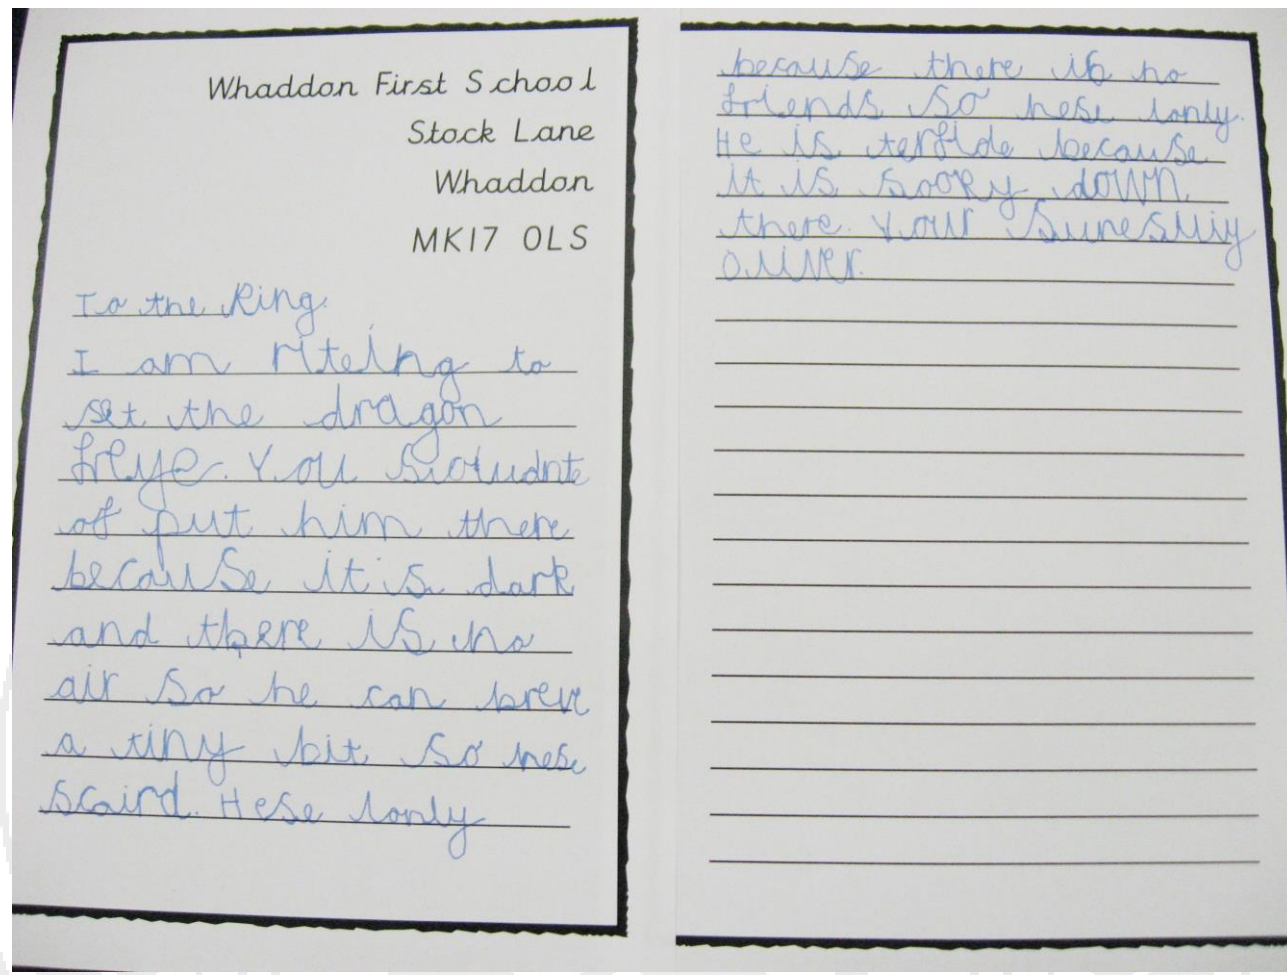 Whaddon First School
Stock Lane
Whaddon
MK17 0LS
To the King.
I am riteing to
set the dragon
freye. You
of put him there
because it is dark
and there is no
air so he can breve
a tiny bit so hese
scaird. Hese lonly
because there is no
friends so hese lonly.
He is terfide because
it is sooky down
there. Your
Oliver.